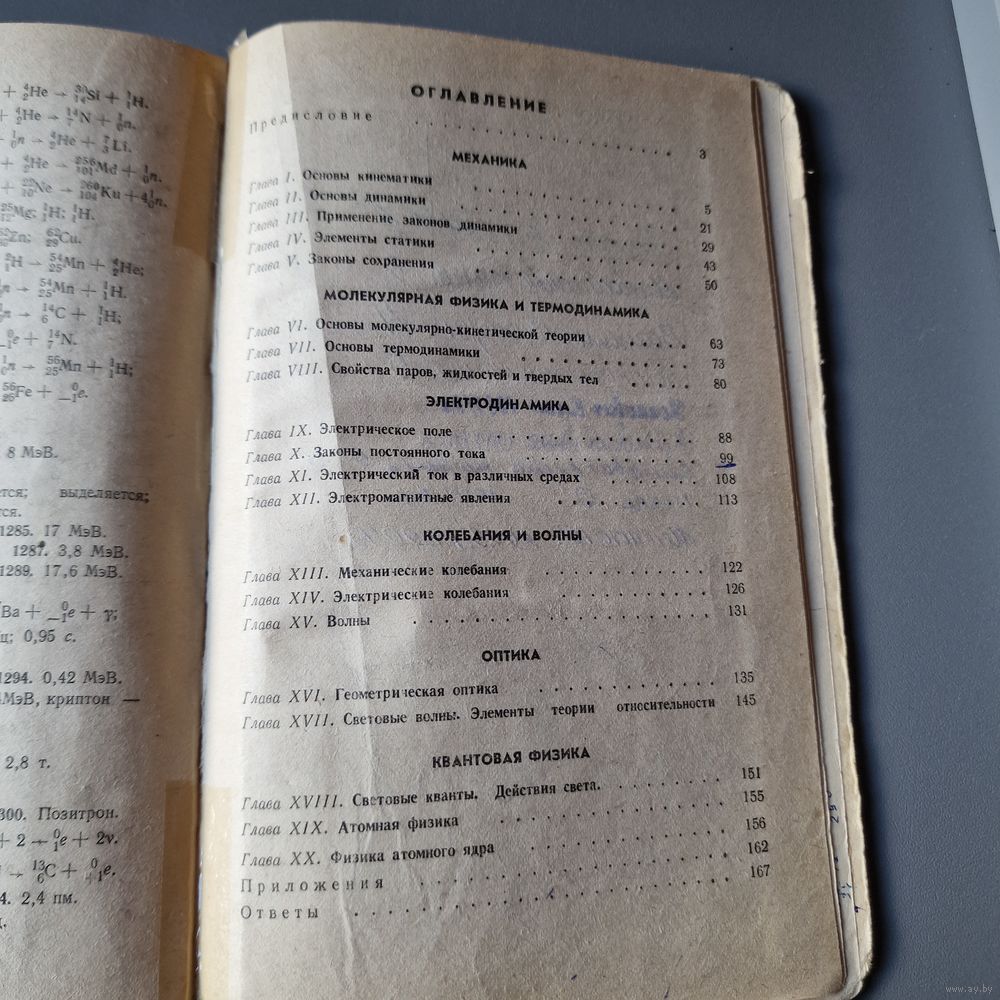 + ⁴₂He → ³⁰₁₄Si + ¹₁H.
+ ⁴₂He → ¹⁴₇N + ¹₀n.
n → ⁴₂He + ⁷₃Li.
+ ⁴₂He → ²⁵⁶₁₀₁Md + ¹₀n.
+ ²²₁₀Ne → ²⁶⁰₁₀₄Ku + 4¹₀n.
Mg; ¹₁H; ¹₁H.
Zn; ⁶³₂₉Cu.
²₁H → ⁵⁴₂₅Mn + ⁴₂He;
n → ⁵⁴₂₅Mn + ¹₁H.
n → ¹⁴₆C + ¹₁H;
⁰₋₁e + ¹⁴₇N.
¹₀n → ⁵⁶₂₅Mn + ¹₁H;
⁵⁶₂₆Fe + ⁰₋₁e.
8 МэВ.
выделяется;
1285. 17 МэВ.
1287. 3,8 МэВ.
1289. 17,6 МэВ.
Ba + ⁰₋₁e + γ;
0,95 с.
1294. 0,42 МэВ.
МэВ, криптон —
2,8 т.
300. Позитрон.
+ 2 ⁰₋₁e + 2ν.
→ ¹³₆C + ⁰₊₁e.
4. 2,4 пм.
ОГЛАВЛЕНИЕ
Предисловие . . . 3
МЕХАНИКА
Глава I. Основы кинематики . . . 5
Глава II. Основы динамики . . . 21
Глава III. Применение законов динамики . . . 29
Глава IV. Элементы статики . . . 43
Глава V. Законы сохранения . . . 50
МОЛЕКУЛЯРНАЯ ФИЗИКА И ТЕРМОДИНАМИКА
Глава VI. Основы молекулярно-кинетической теории . . . 63
Глава VII. Основы термодинамики . . . 73
Глава VIII. Свойства паров, жидкостей и твердых тел . . . 80
ЭЛЕКТРОДИНАМИКА
Глава IX. Электрическое поле . . . 88
Глава X. Законы постоянного тока . . . 99
Глава XI. Электрический ток в различных средах . . . 108
Глава XII. Электромагнитные явления . . . 113
КОЛЕБАНИЯ И ВОЛНЫ
Глава XIII. Механические колебания . . . 122
Глава XIV. Электрические колебания . . . 126
Глава XV. Волны . . . 131
ОПТИКА
Глава XVI. Геометрическая оптика . . . 135
Глава XVII. Световые волны. Элементы теории относительности 145
КВАНТОВАЯ ФИЗИКА
Глава XVIII. Световые кванты. Действия света. . . . 151
Глава XIX. Атомная физика . . . 155
Глава XX. Физика атомного ядра . . . 156
Приложения . . . 162
Ответы . . . 167
www.ay.by